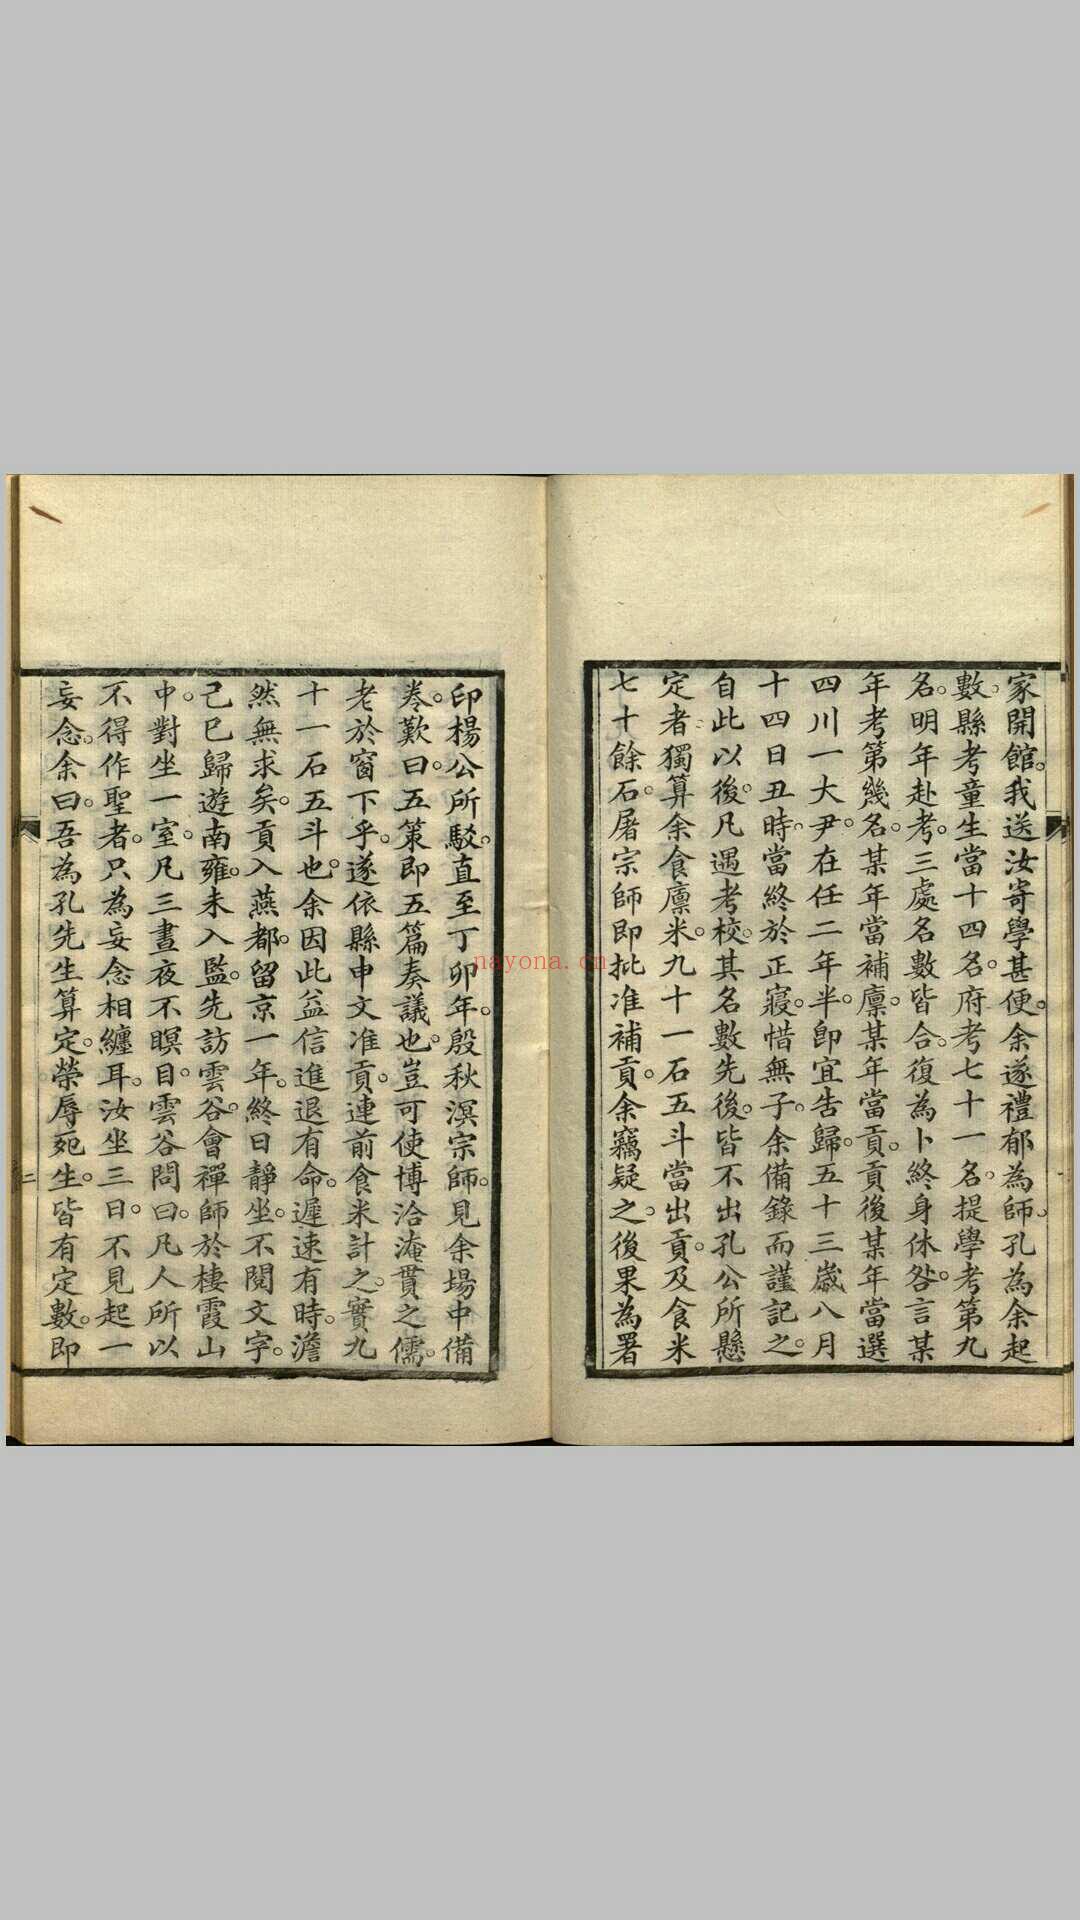 家開館。我送汝寄學甚便。余遂禮郁為師。孔為余起
數。縣考童生當十四名。府考七十一名。提學考第九
名。明年赴考。三處名數皆合。復為卜終身休咎。言某
年考第幾名。某年當補廩。某年當貢。貢後某年當選
四川一大尹。在任二年半。即宜告歸。五十三歲八月
十四日丑時。當終於正寢。惜無子。余備錄而謹記之。
自此以後。凡遇考校。其名數先後。皆不出孔公所懸
定者。獨算余食廩米九十一石五斗當出貢。及食米
七十餘石。屠宗師即批准補貢。余竊疑之。後果為署
印楊公所駁。直至丁卯年。殷秋溟宗師。見余場中備
卷。歎曰。五策即五篇奏議也。豈可使博洽淹貫之儒。
老於窗下乎。遂依縣申文准貢。連前食米計之。實九
十一石五斗也。余因此益信進退有命。遲速有時。澹
然無求矣。貢入燕都。留京一年。終日靜坐。不閱文字。
己巳歸。遊南雍。未入監。先訪雲谷。會禪師於棲霞山
中。對坐一室。凡三晝夜不瞑目。雲谷問曰。凡人所以
不得作聖者。只為妄念相纏耳。汝坐三日。不見起一
妄念。余曰。吾為孔先生算定。榮辱死生。皆有定數。即
二
nayona.cn